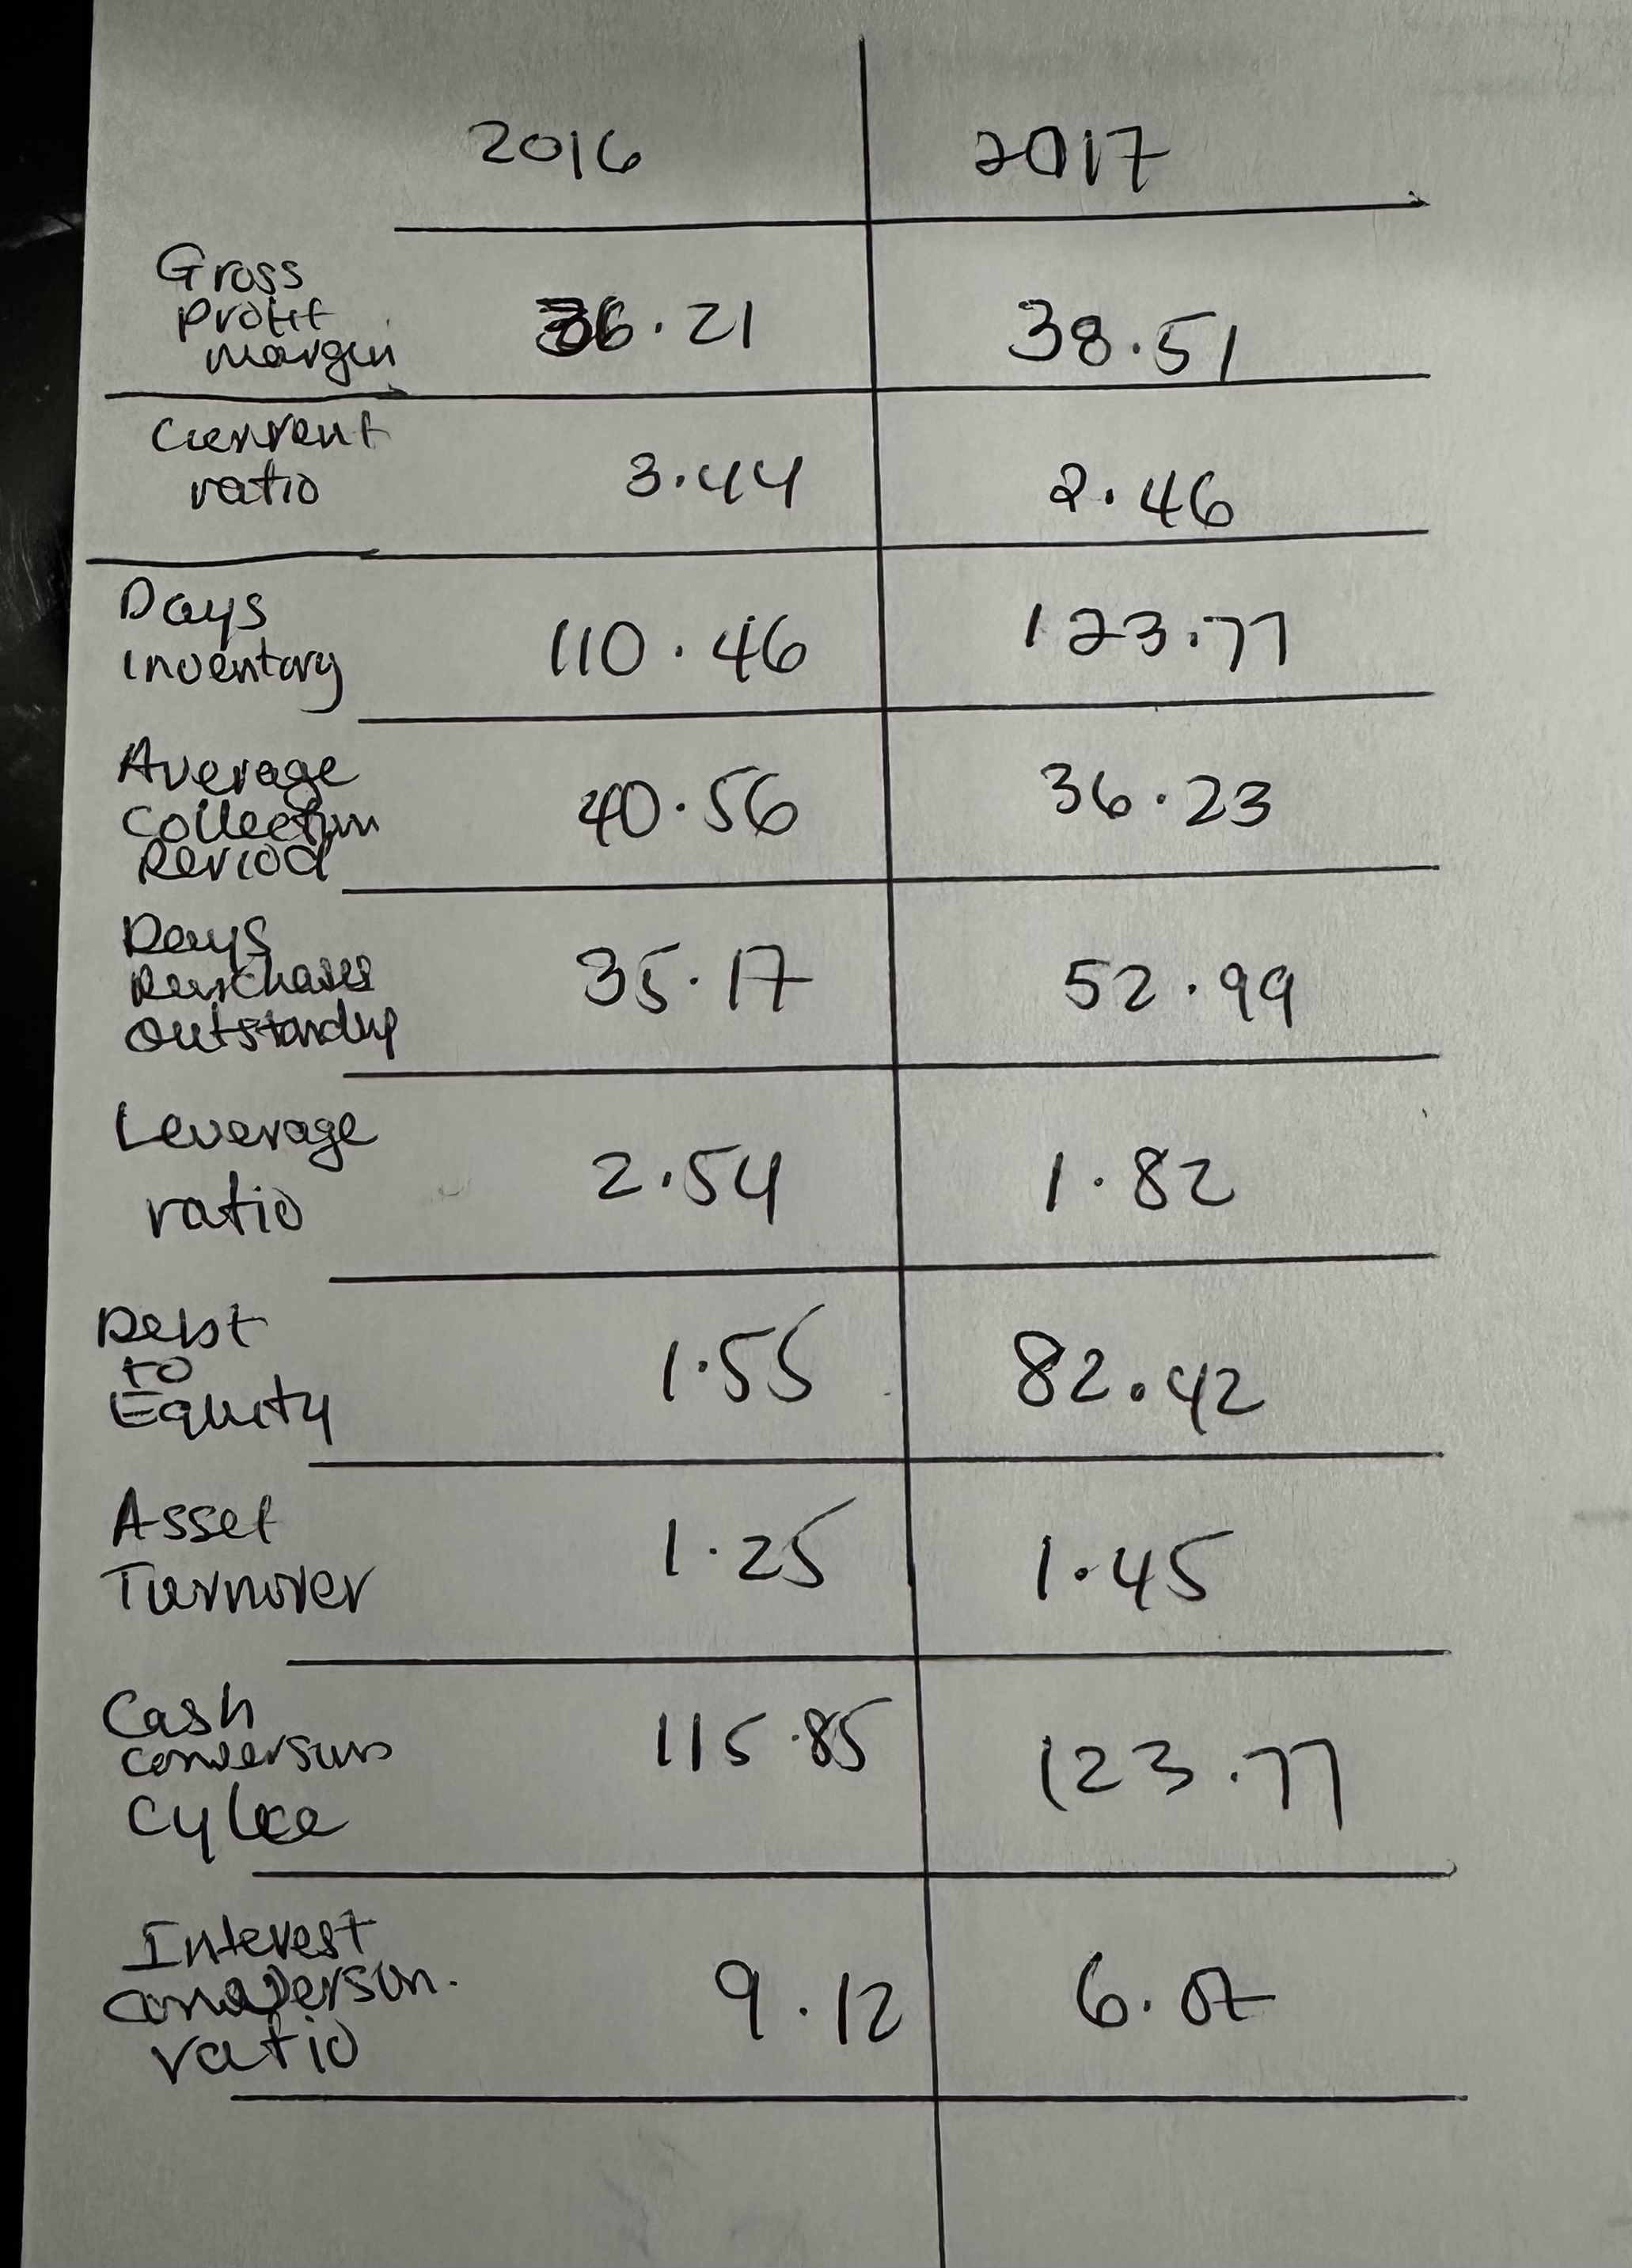 2016 2017
Gross
Profit
margin 36.21 38.51
Current
ratio 3.44 2.46
Days
Inventory 110.46 123.77
Average
Collection
Period 40.56 36.23
Days
Purchases
Outstanding 35.17 52.99
Leverage
ratio 2.54 1.82
Debt
to
Equity 1.55 82.42
Asset
Turnover 1.25 1.45
Cash
conversion 115.85 123.77
Interest
ratio 9.12 6.07